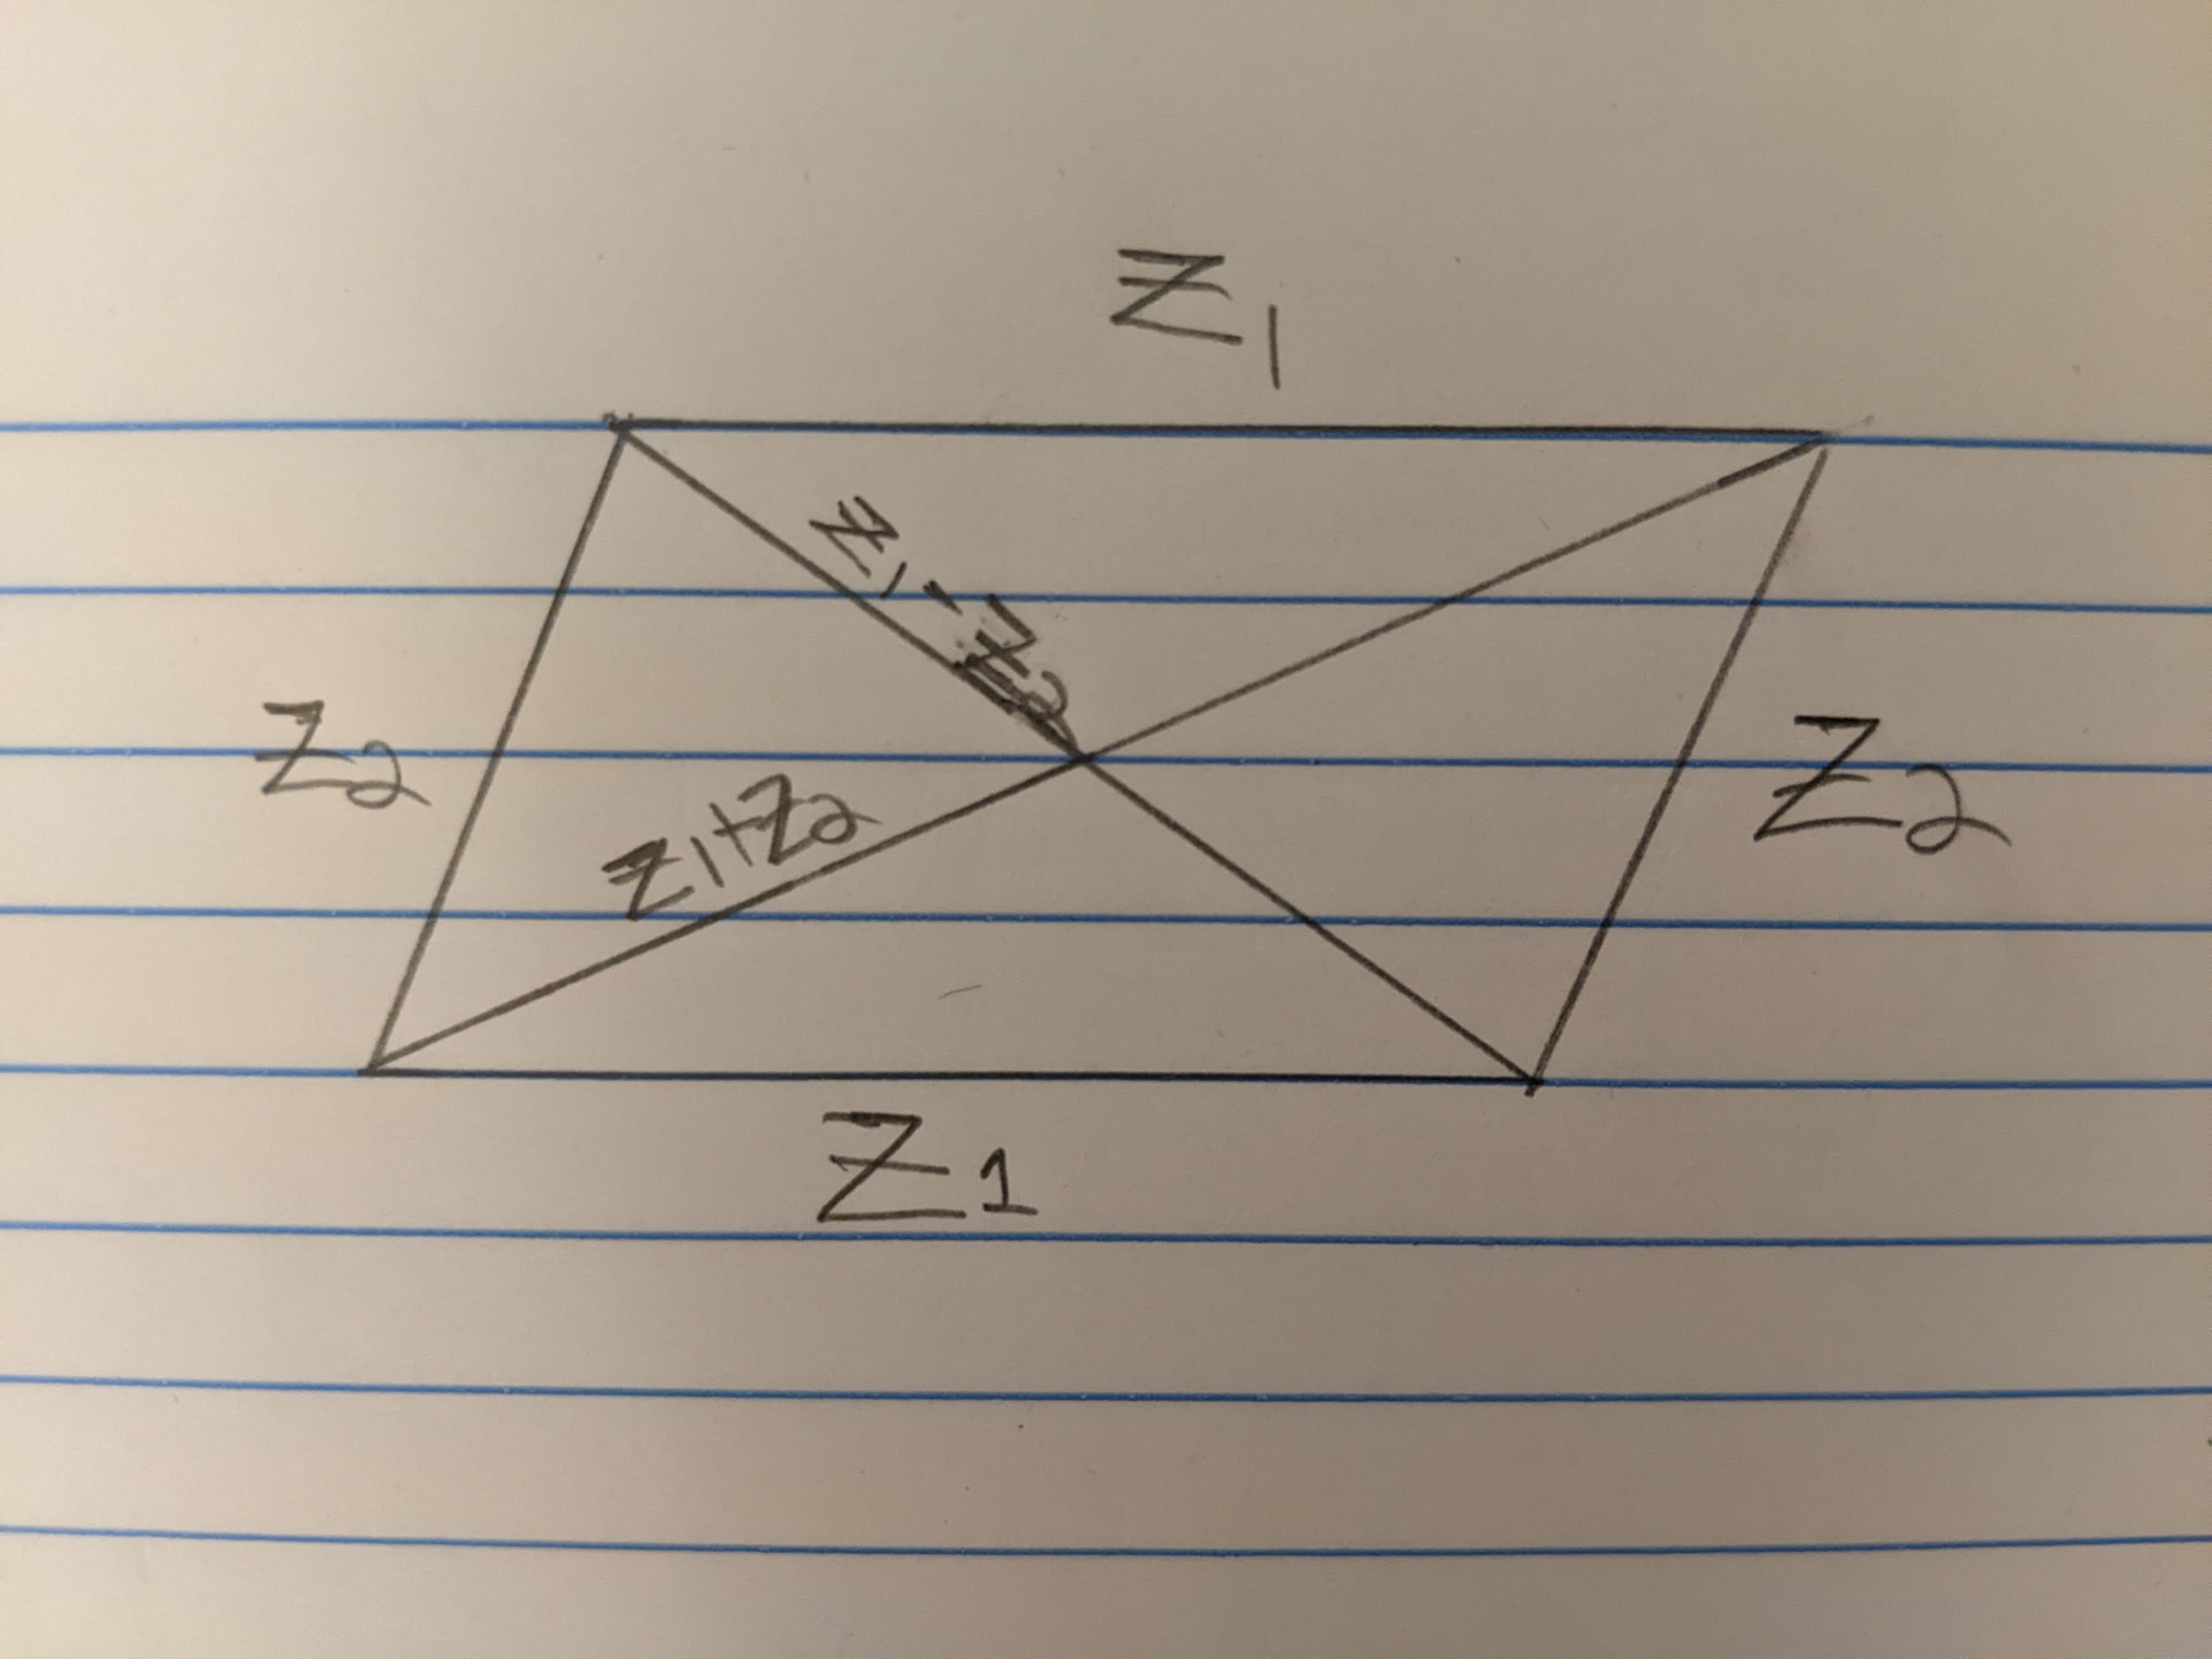 Z1
Z1-Z2
Z2
Z2
Z1+Z2
Z1